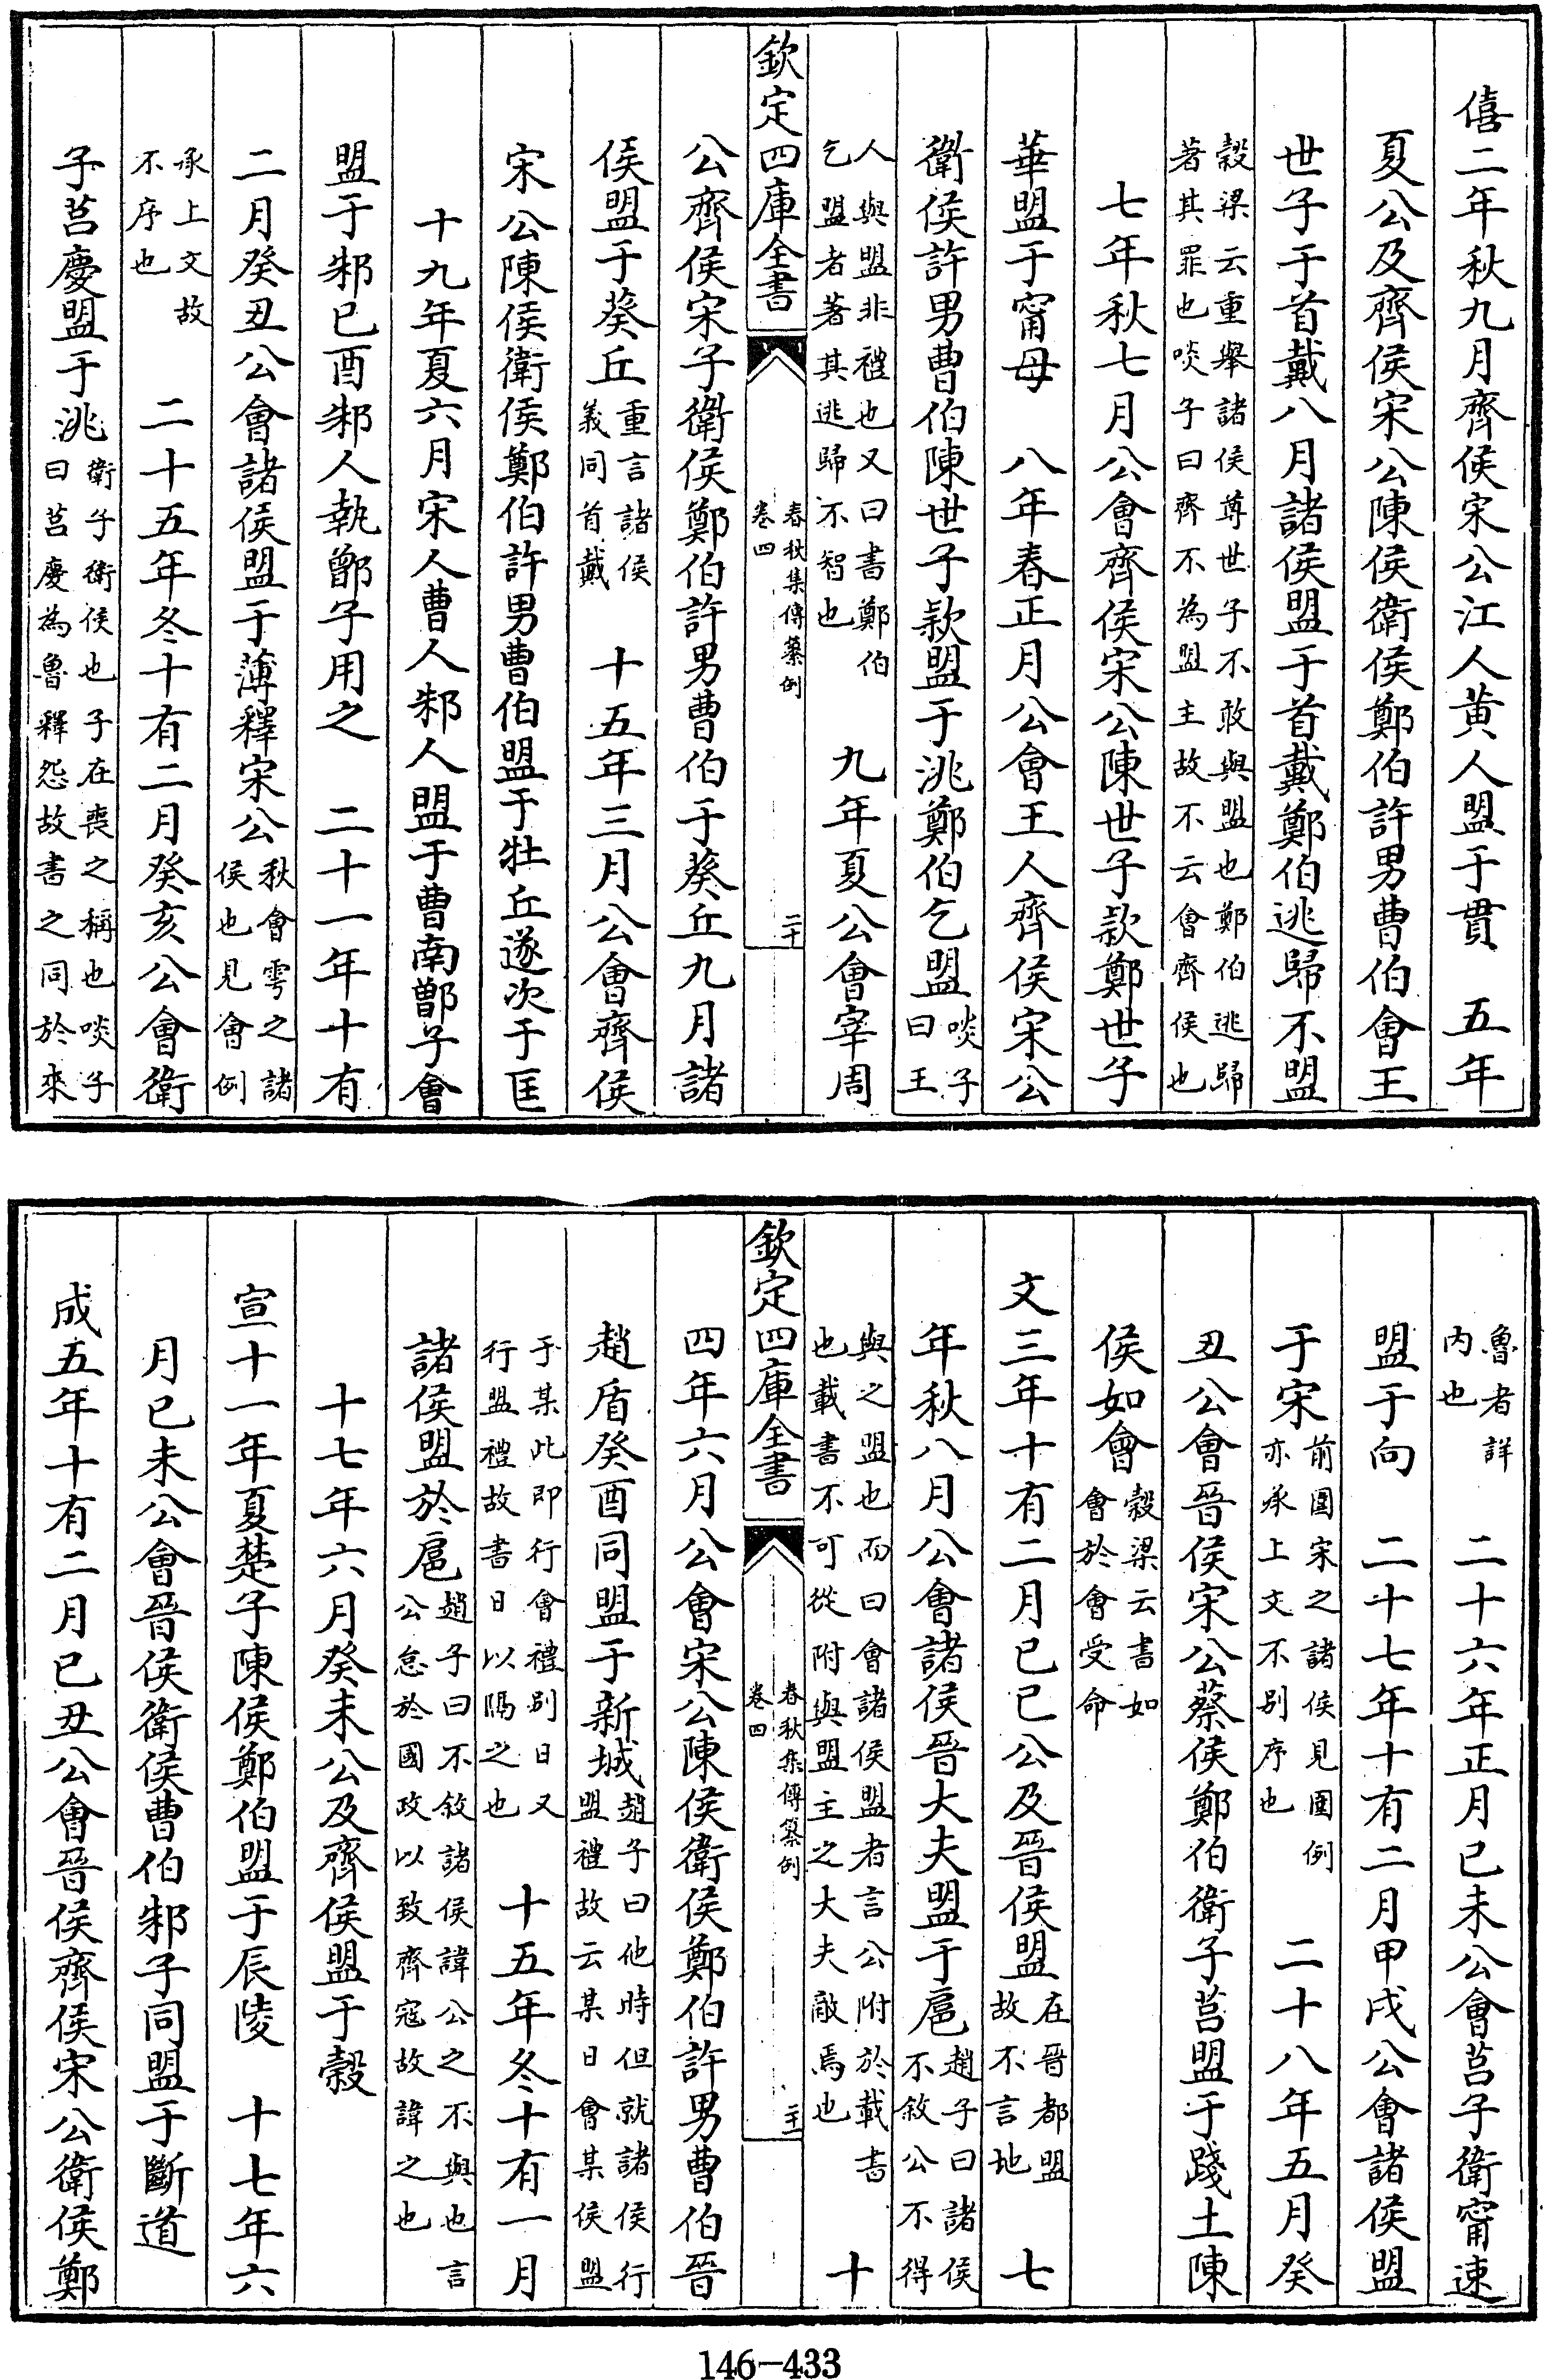 僖二年秋九月齊侯宋公江人黄人盟于貫　五年
夏公及齊侯宋公陳侯衛侯鄭伯許男曹伯會王
世子于首戴八月諸侯盟于首戴鄭伯逃歸不盟
榖梁云重舉諸侯尊世子不敢與盟也鄭伯逃歸
著其罪也啖子曰齊不為盟主故不云會齊侯也
七年秋七月公會齊侯宋公陳世子款鄭世子
華盟于甯母　八年春正月公會王人齊侯宋公
衛侯許男曹伯陳世子款盟于洮鄭伯乞盟啖子曰王
人與盟非禮也又曰書鄭伯
乞盟者著其逃歸不智也　九年夏公會宰周
欽定四庫全書　春秋集傳纂例卷四　二十
公齊侯宋子衛侯鄭伯許男曹伯于葵丘九月諸
侯盟于葵丘重言諸侯義同首戴　十五年三月公會齊侯
宋公陳侯衛侯鄭伯許男曹伯盟于牡丘遂次于匡
十九年夏六月宋人曹人邾人盟于曹南鄫子會
盟于邾已酉邾人執鄫子用之　二十一年十有
二月癸丑公會諸侯盟于薄釋宋公秋會雩之諸侯也見會例
承上文故
不序也　二十五年冬十有二月癸亥公會衛
子莒慶盟于洮衛子衛侯也子在喪之稱也啖子曰莒慶為魯釋怨故書之同於來
魯者詳
内也　二十六年正月已未公會莒子衛甯速
盟于向　二十七年十有二月甲戌公會諸侯盟
于宋前圍宋之諸侯見圍例亦承上文不别序也　二十八年五月癸
丑公會晉侯宋公蔡侯鄭伯衛子莒盟于踐土陳
侯如會榖梁云書如會於會受命
文三年十有二月已已公及晉侯盟在晉都盟故不言地　七
年秋八月公會諸侯晉大夫盟于扈趙子曰諸侯不敘公不得
與之盟也而曰會諸侯盟者言公附於載書
也載書不可從附與盟主之大夫敵焉也　十
欽定四庫全書　春秋集傳纂例卷四　二十一
四年六月公會宋公陳侯衛侯鄭伯許男曹伯晉
趙盾癸酉同盟于新城趙子曰他時但就諸侯行盟禮故云某日會某侯盟
于某此即行會禮别日又
行盟禮故書日以隔之也　十五年冬十有一月
諸侯盟於扈趙子曰不敘諸侯諱公之不與也言公怠於國政以致齊寇故諱之也
十七年六月癸未公及齊侯盟于榖
宣十一年夏楚子陳侯鄭伯盟于辰陵　十七年六
月已未公會晉侯衛侯曹伯邾子同盟于斷道
成五年十有二月已丑公會晉侯齊侯宋公衛侯鄭
146-433